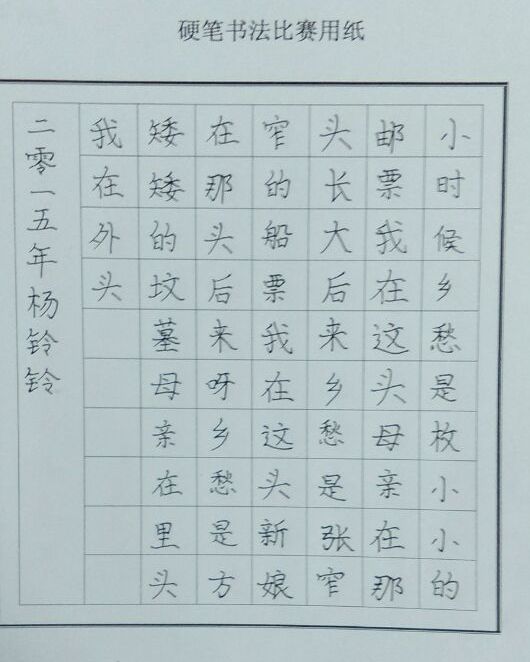 硬笔书法比赛用纸
小时候乡愁是枚小小的
邮票我在这头母亲在那
头长大后来乡愁是张窄
窄的船票我在这头新娘
在那头后来呀乡愁是方
矮矮的坟墓母亲在里头
我在外头
二零一五年杨铃铃